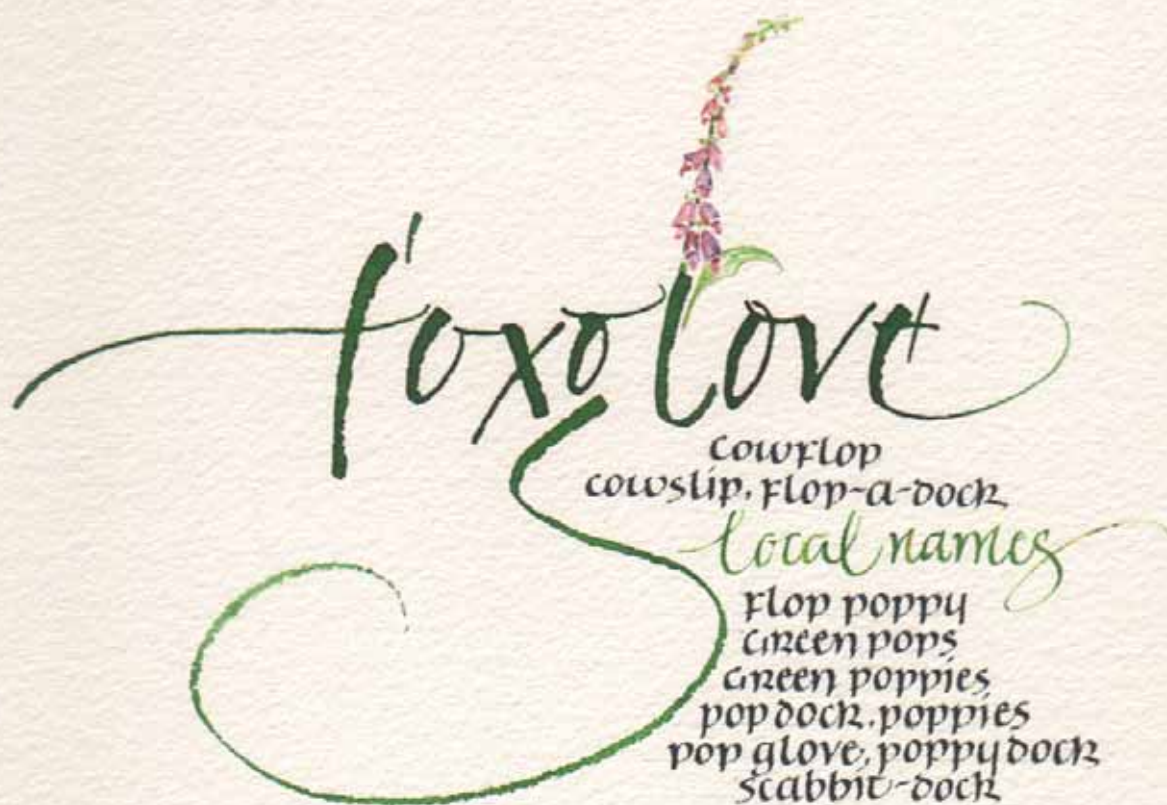 foxglove
cowflop
cowslip, flop-a-dock
local names
flop poppy
green pops
green poppies
pop dock, poppies
pop glove, poppy dock
scabbit-dock